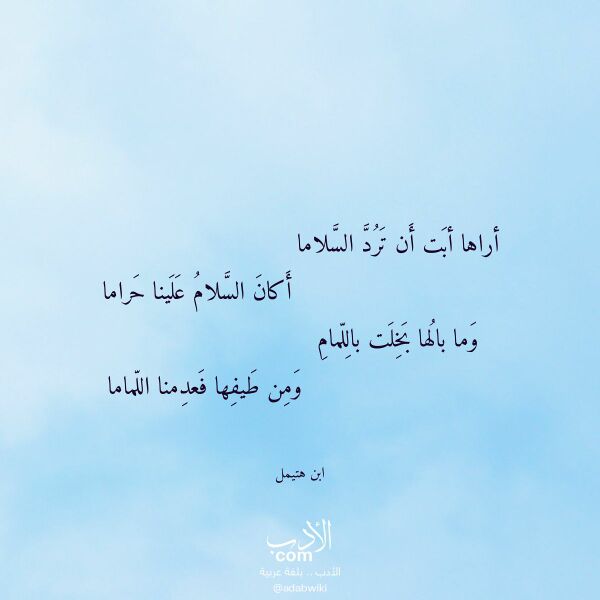 أراها أبَت أَن تَرُدَّ السَّلاما
أَكانَ السَّلامُ عَلَينا حَراما
وَما بالُها بَخِلَت باللِّمامِ
وَمِن طَيفِها فَعدِمنا اللّماما
ابن هتيمل
الأدب
com
الأدب .. بلغة عربية
@adabwiki